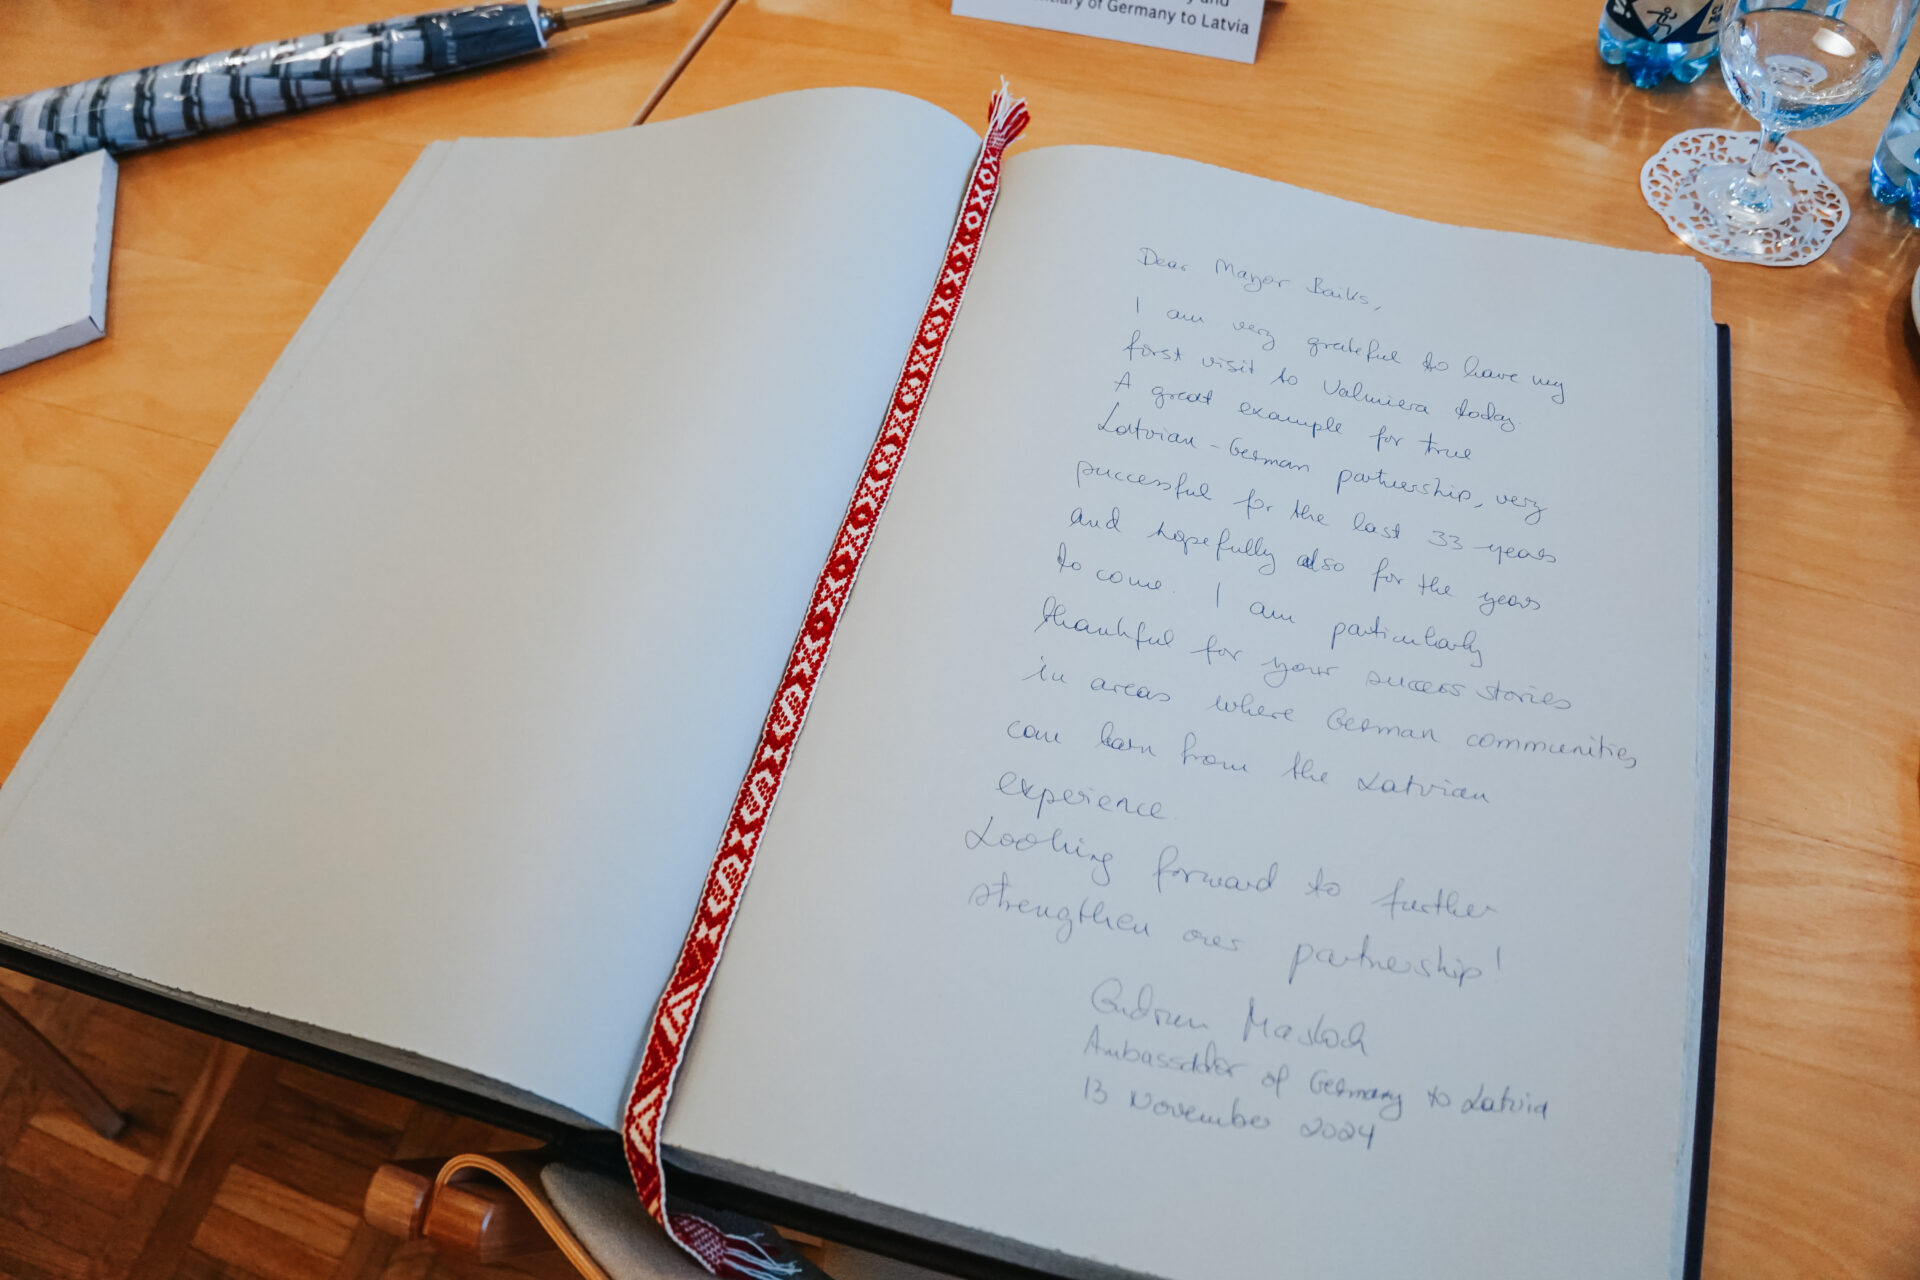 of Germany to Latvia
Dear Mayor Baiks,
I am very grateful to have my
first visit to Valmiera today.
A great example for true
Latvian-German partnership, very
successful for the last 33 years
and hopefully also for the years
to come. I am particularly
thankful for your success stories
in areas where German communities
can learn from the Latvian
experience.
Looking forward to further
strengthen our partnership!
Gudrun Masloch
Ambassador of Germany to Latvia
13 November 2024